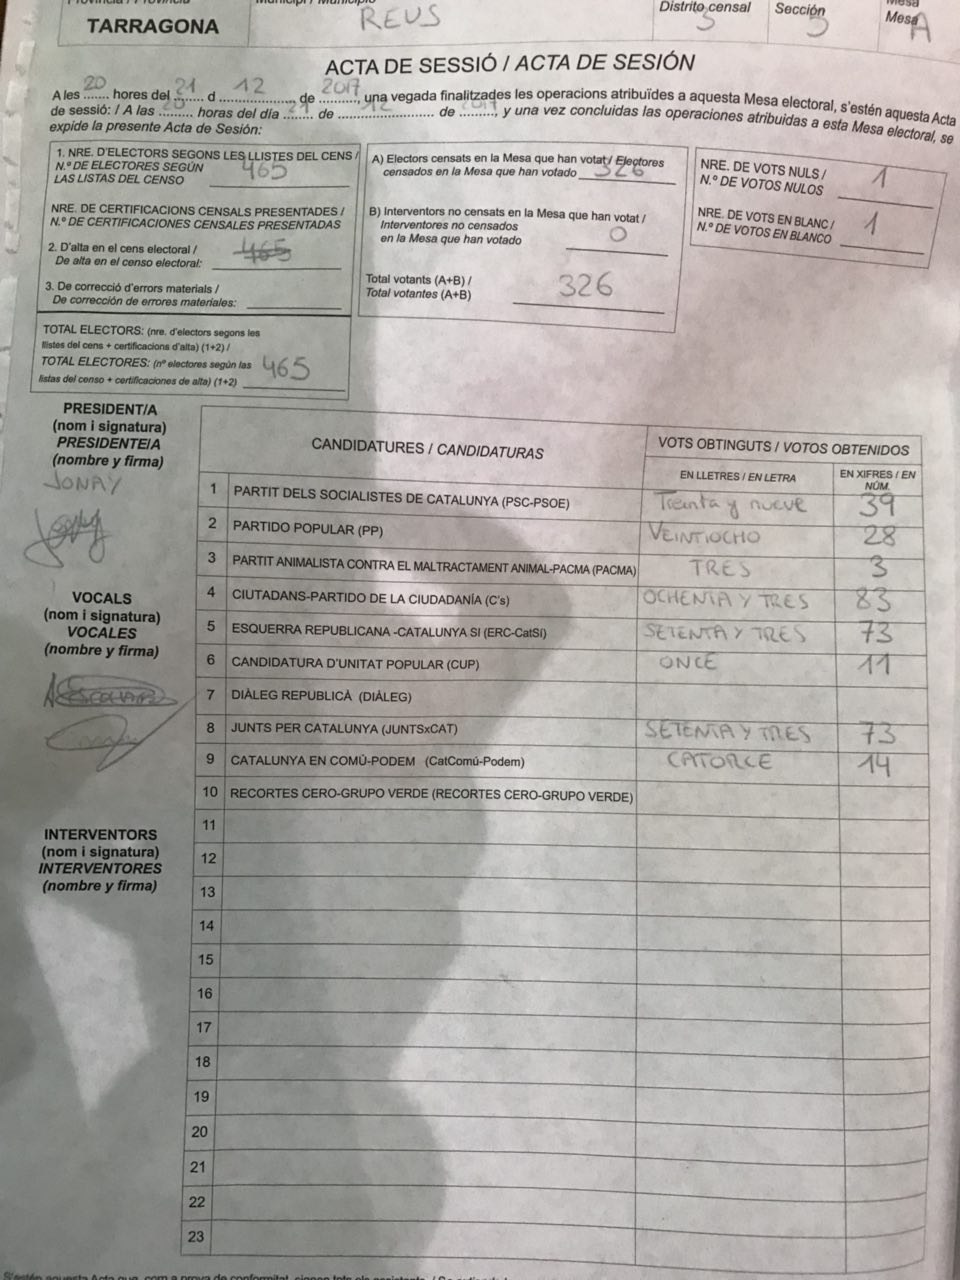 TARRAGONA
REUS
Distrito censal 5
Sección 5
Mesa A
ACTA DE SESSIÓ / ACTA DE SESIÓN
A les 20 hores del 21 d 12 de 2017, una vegada finalitzades les operacions atribuïdes a aquesta Mesa electoral, s'estén aquesta Acta
de sessió: / A las 20 horas del día 21 de 12 de 2017, y una vez concluidas las operaciones atribuidas a esta Mesa electoral, se
expide la presente Acta de Sesión:
1. NRE. D'ELECTORS SEGONS LES LLISTES DEL CENS /
N.º DE ELECTORES SEGÚN
LAS LISTAS DEL CENSO 465
NRE. DE CERTIFICACIONS CENSALS PRESENTADES /
N.º DE CERTIFICACIONES CENSALES PRESENTADAS
2. D'alta en el cens electoral /
De alta en el censo electoral: 465
3. De correcció d'errors materials /
De corrección de errores materiales:
TOTAL ELECTORS: (nre. d'electors segons les
llistes del cens + certificacions d'alta) (1+2) /
TOTAL ELECTORES: (nº electores según las
listas del censo + certificaciones de alta) (1+2) 465
A) Electors censats en la Mesa que han votat / Electores
censados en la Mesa que han votado 326
B) Interventors no censats en la Mesa que han votat /
Interventores no censados
en la Mesa que han votado 0
Total votants (A+B) /
Total votantes (A+B) 326
NRE. DE VOTS NULS /
N.º DE VOTOS NULOS 1
NRE. DE VOTS EN BLANC /
N.º DE VOTOS EN BLANCO 1
PRESIDENT/A
(nom i signatura)
PRESIDENTE/A
(nombre y firma)
JONAY
VOCALS
(nom i signatura)
VOCALES
(nombre y firma)
INTERVENTORS
(nom i signatura)
INTERVENTORES
(nombre y firma)
CANDIDATURES / CANDIDATURAS
VOTS OBTINGUTS / VOTOS OBTENIDOS
EN LLETRES / EN LETRA
EN XIFRES / EN
NÚM.
1 PARTIT DELS SOCIALISTES DE CATALUNYA (PSC-PSOE) Treinta y nueve 39
2 PARTIDO POPULAR (PP) VEINTIOCHO 28
3 PARTIT ANIMALISTA CONTRA EL MALTRACTAMENT ANIMAL-PACMA (PACMA) TRES 3
4 CIUTADANS-PARTIDO DE LA CIUDADANÍA (C's) OCHENTA Y TRES 83
5 ESQUERRA REPUBLICANA -CATALUNYA SI (ERC-CatSí) SETENTA Y TRES 73
6 CANDIDATURA D'UNITAT POPULAR (CUP) ONCE 11
7 DIÀLEG REPUBLICÀ (DIÀLEG)
8 JUNTS PER CATALUNYA (JUNTSxCAT) SETENTA Y TRES 73
9 CATALUNYA EN COMÚ-PODEM (CatComú-Podem) CATORCE 14
10 RECORTES CERO-GRUPO VERDE (RECORTES CERO-GRUPO VERDE)
11
12
13
14
15
16
17
18
19
20
21
22
23